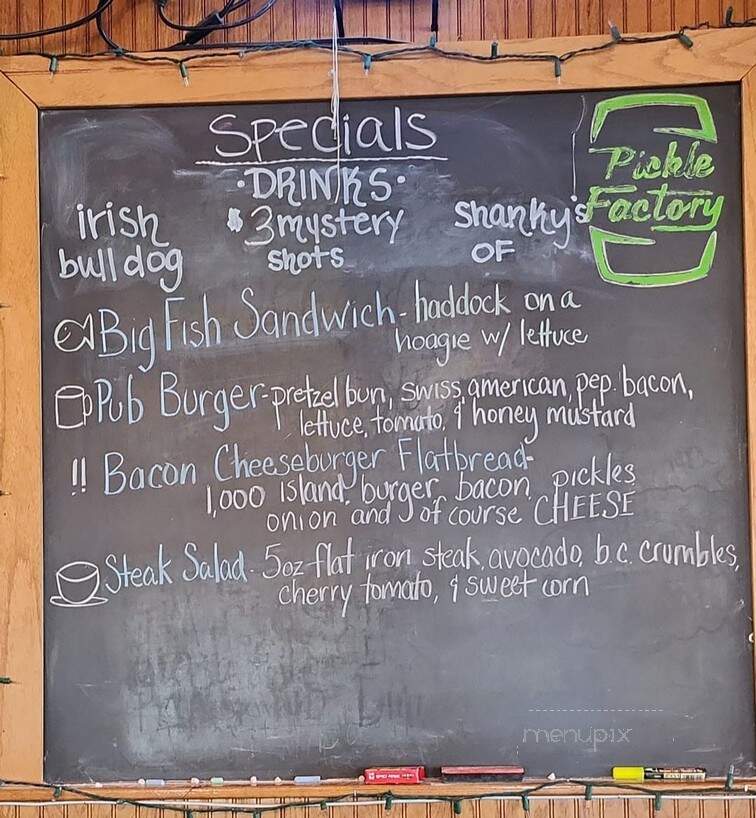 Specials
•DRINKS•
irish
bulldog
$3 mystery
shots
Shanky's
OF
Pickle
Factory
Big Fish Sandwich - haddock on a
hoagie w/ lettuce
Pub Burger - pretzel bun, swiss, american, pep. bacon,
lettuce, tomato, & honey mustard
!! Bacon Cheeseburger Flatbread -
1,000 island, burger, bacon, pickles
onion and of course CHEESE
Steak Salad - 5oz flat iron steak, avocado, b.c. crumbles,
cherry tomato, & sweet corn
menupix